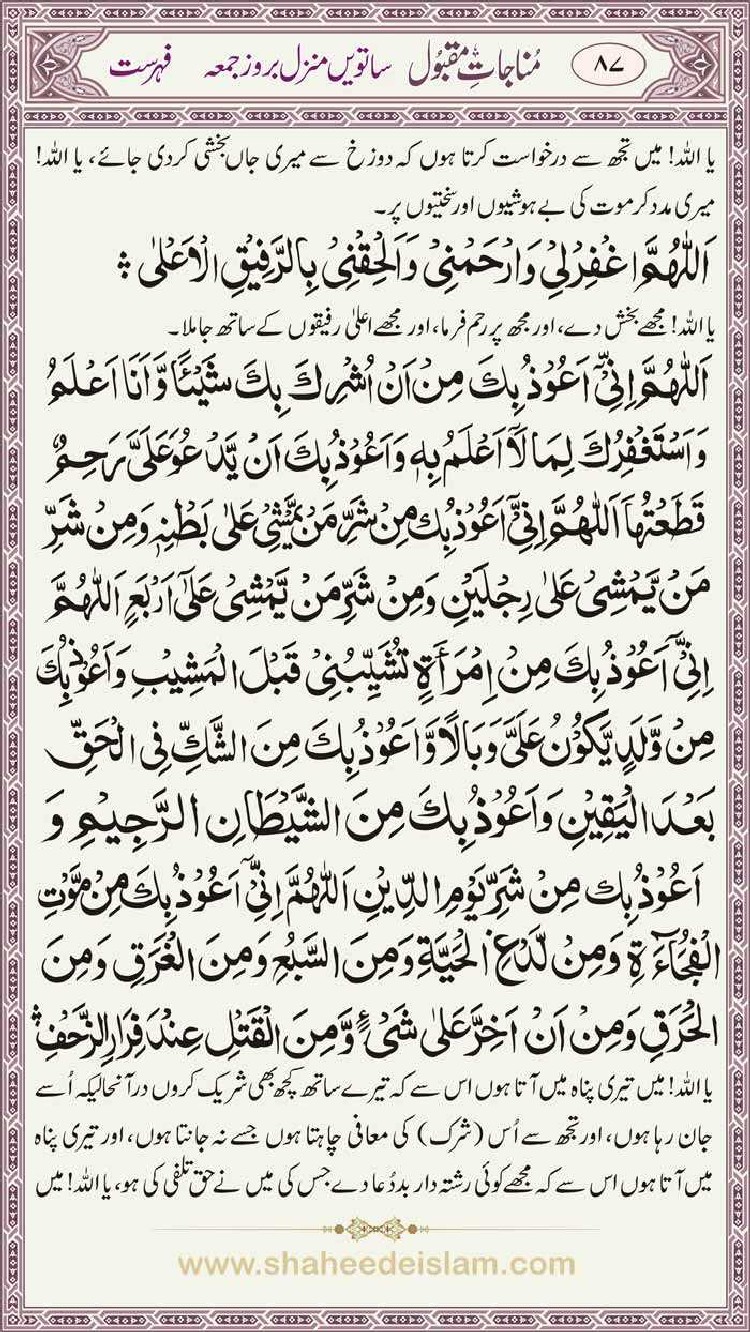 ۸۷ مُناجاتِ مقبُول ساتویں منزل بروز جمعہ فہرست
یا اللہ! میں تجھ سے درخواست کرتا ہوں کہ دوزخ سے میری جاں بخشی کردی جائے، یا اللہ!
میری مدد کر موت کی بے ہوشیوں اور سختیوں پر۔
اَللّٰهُمَّ اغْفِرْلِيْ وَارْحَمْنِيْ وَاَلْحِقْنِيْ بِالرَّفِيْقِ الْاَعْلٰى
یا اللہ! مجھے بخش دے، اور مجھ پر رحم فرما، اور مجھے اعلیٰ رفیقوں کے ساتھ جاملا۔
اَللّٰهُمَّ اِنِّيْٓ اَعُوْذُ بِكَ مِنْ اَنْ اُشْرِكَ بِكَ شَيْئًا وَّاَنَا اَعْلَمُ
وَاَسْتَغْفِرُكَ لِمَا لَآ اَعْلَمُ بِهٖ وَاَعُوْذُ بِكَ اَنْ يَّدْعُوَ عَلَيَّ رَحِمٌ
قَطَعْتُهَا اَللّٰهُمَّ اِنِّيْٓ اَعُوْذُ بِكَ مِنْ شَرِّ مَنْ يَّمْشِيْ عَلٰى بَطْنِهٖ وَمِنْ شَرِّ
مَنْ يَّمْشِيْ عَلٰى رِجْلَيْنِ وَمِنْ شَرِّ مَنْ يَّمْشِيْ عَلٰٓى اَرْبَعٍ اَللّٰهُمَّ
اِنِّيْٓ اَعُوْذُ بِكَ مِنْ اِمْرَأَةٍ تُشَيِّبُنِيْ قَبْلَ الْمَشِيْبِ وَاَعُوْذُ بِكَ
مِنْ وَّلَدٍ يَّكُوْنُ عَلَيَّ وَبَالًا وَّاَعُوْذُ بِكَ مِنَ الشَّكِّ فِي الْحَقِّ
بَعْدَ الْيَقِيْنِ وَاَعُوْذُ بِكَ مِنَ الشَّيْطَانِ الرَّجِيْمِ وَ
اَعُوْذُ بِكَ مِنْ شَرِّ يَوْمِ الدِّيْنِ اَللّٰهُمَّ اِنِّيْٓ اَعُوْذُ بِكَ مِنْ مَّوْتِ
الْفُجَاءَةِ وَمِنْ لَّدْغِ الْحَيَّةِ وَمِنَ السَّبُعِ وَمِنَ الْغَرَقِ وَمِنَ
الْحَرَقِ وَمِنْ اَنْ اَخِرَّ عَلٰى شَيْءٍ وَّمِنَ الْقَتْلِ عِنْدَ فِرَارِ الزَّحْفِ
یا اللہ! میں تیری پناہ میں آتا ہوں اس سے کہ تیرے ساتھ کچھ بھی شریک کروں درآنحالیکہ اُسے
جان رہا ہوں، اور تجھ سے اُس (شرک) کی معافی چاہتا ہوں جسے نہ جانتا ہوں، اور تیری پناہ
میں آتا ہوں اس سے کہ مجھے کوئی رشتہ دار بددُعا دے جس کی میں نے حق تلفی کی ہو، یا اللہ! میں
www.shaheedeislam.com